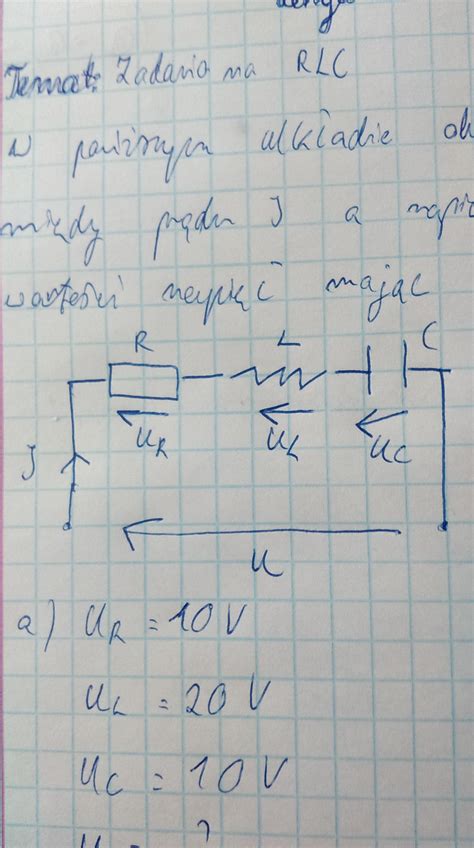 Temat: Zadania na RLC
W poniższym układzie
między prądem I a
wartości napięć mając
R
L
C
U_R
U_L
U_C
I
U
a) U_R = 10 V
U_L = 20 V
U_C = 10 V